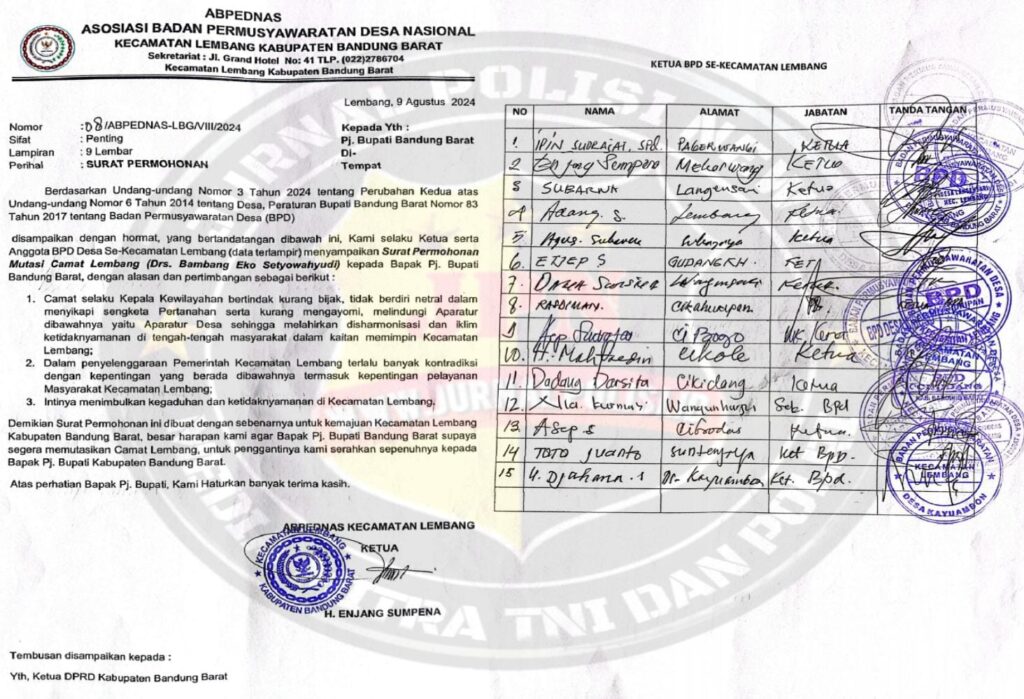 ABPEDNAS
ASOSIASI BADAN PERMUSYAWARATAN DESA NASIONAL
KECAMATAN LEMBANG KABUPATEN BANDUNG BARAT
Sekretariat : Jl. Grand Hotel No: 41 TLP. (022)2786704
Kecamatan Lembang Kabupaten Bandung Barat
Lembang, 9 Agustus 2024
Nomor : 08/ABPEDNAS-LBG/VIII/2024
Sifat : Penting
Lampiran : 9 Lembar
Perihal : SURAT PERMOHONAN
Kepada Yth :
Pj. Bupati Bandung Barat
Di-
Tempat
Berdasarkan Undang-undang Nomor 3 Tahun 2024 tentang Perubahan Kedua atas
Undang-undang Nomor 6 Tahun 2014 tentang Desa, Peraturan Bupati Bandung Barat Nomor 83
Tahun 2017 tentang Badan Permusyawaratan Desa (BPD)
disampaikan dengan hormat, yang bertandatangan dibawah ini, Kami selaku Ketua serta
Anggota BPD Desa Se-Kecamatan Lembang (data terlampir) menyampaikan Surat Permohonan
Mutasi Camat Lembang (Drs. Bambang Eko Setyowahyudi) kepada Bapak Pj. Bupati
Bandung Barat, dengan alasan dan pertimbangan sebagai berikut :
1. Camat selaku Kepala Kewilayahan bertindak kurang bijak, tidak berdiri netral dalam
menyikapi sengketa Pertanahan serta kurang mengayomi, melindungi Aparatur
dibawahnya yaitu Aparatur Desa sehingga melahirkan disharmonisasi dan iklim
ketidaknyamanan di tengah-tengah masyarakat dalam kaitan memimpin Kecamatan
Lembang;
2. Dalam penyelenggaraan Pemerintah Kecamatan Lembang terlalu banyak kontradiksi
dengan kepentingan yang berada dibawahnya termasuk kepentingan pelayanan
Masyarakat Kecamatan Lembang;
3. Intinya menimbulkan kegaduhan dan ketidaknyamanan di Kecamatan Lembang,
Demikian Surat Permohonan ini dibuat dengan sebenarnya untuk kemajuan Kecamatan Lembang
Kabupaten Bandung Barat, besar harapan kami agar Bapak Pj. Bupati Bandung Barat supaya
segera memutasikan Camat Lembang, untuk penggantinya kami serahkan sepenuhnya kepada
Bapak Pj. Bupati Kabupaten Bandung Barat.
Atas perhatian Bapak Pj. Bupati, Kami Haturkan banyak terima kasih.
ABPEDNAS KECAMATAN LEMBANG
KETUA
KECAMATAN LEMBANG
KABUPATEN BANDUNG BARAT
H. ENJANG SUMPENA
Tembusan disampaikan kepada :
Yth, Ketua DPRD Kabupaten Bandung Barat
KETUA BPD SE-KECAMATAN LEMBANG
NO NAMA ALAMAT JABATAN TANDA TANGAN
1. IPIN SUDRAJAT, SPd. PAGERWANGI KETUA
2 Mekarwangi Ketua
3 SUBARNA Langensari Ketua
4 Adang S. Lembang Ketua
5 Agus Ketua
6. ETJEP S GUDANGKH.
7. Ketua
8. Cikahuripan.
9 Cibogo
10. H. Cikole Ketua
11. Dadang Darsita Cikidang Ketua
12. Wangunharja Sek. Bpd
13. Asep S Cibodas Ketua.
14 TOTO JUANTO Suntenjaya Ket Bpd.
15 Ds. Kayuambon Ket. Bpd.
BPD
KEC. LEMBANG
BPD
BPD DESA
BPD
KECAMATAN
LEMBANG
DESA KAYUAMBON